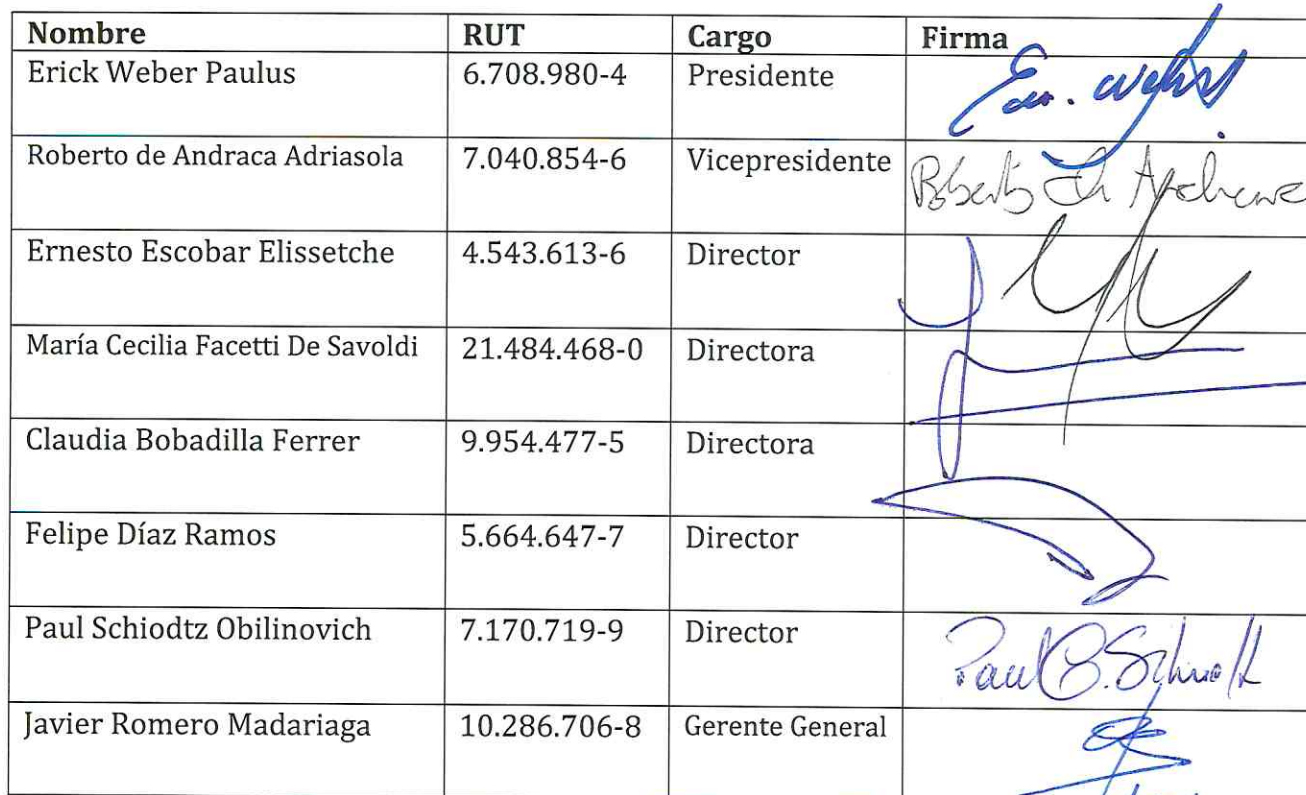 Nombre RUT Cargo Firma
Erick Weber Paulus 6.708.980-4 Presidente
Roberto de Andraca Adriasola 7.040.854-6 Vicepresidente
Ernesto Escobar Elissetche 4.543.613-6 Director
María Cecilia Facetti De Savoldi 21.484.468-0 Directora
Claudia Bobadilla Ferrer 9.954.477-5 Directora
Felipe Díaz Ramos 5.664.647-7 Director
Paul Schiodtz Obilinovich 7.170.719-9 Director
Javier Romero Madariaga 10.286.706-8 Gerente General